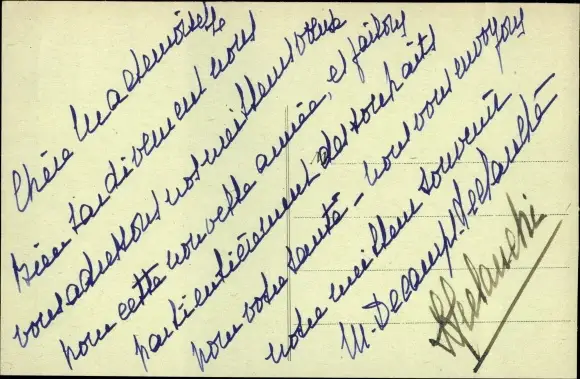 Chère Mademoiselle
Bien tardivement nous
vous adressons nos meilleurs voeux
pour cette nouvelle année, et faisons
particulièrement des souhaits
pour votre santé - nous vous envoyons
notre meilleur souvenir
M. Decamps